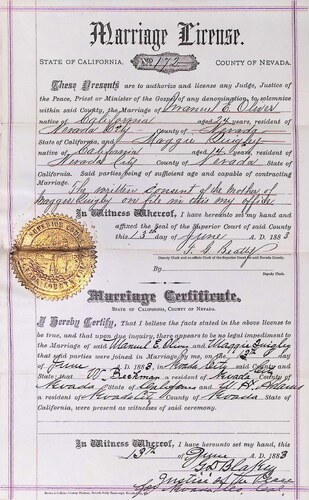 Marriage License.
STATE OF CALIFORNIA, No. 172 COUNTY OF NEVADA.
These Presents are to authorize and license any Judge, Justice of
the Peace, Priest or Minister of the Gospel of any denomination, to solemnize
within said County, the Marriage of Emanuel E. Oliver
native of California aged 24 years, resident of
Nevada City County of Nevada
State of California, and Maggie Quigley
native of California aged years, resident of
Nevada City County of Nevada
State of California. Said parties being of sufficient age and capable of contracting
Marriage.
The written consent of the mother of
Maggie Quigley on file in this my office.
In Witness Whereof, I have hereunto set my hand
and affixed the Seal of the Superior Court of said County
this 13th day of June A. D. 1883
Deputy Clerk and ex-officio Clerk of the Superior Court for said County.
By
Deputy Clerk.
SUPERIOR COURT
Marriage Certificate.
STATE OF CALIFORNIA, COUNTY OF NEVADA.
I Hereby Certify, That I believe the facts stated in the above license
to be true, and that upon due inquiry, there appears to be no legal impediment
to the Marriage of said Manuel E. Oliver and Maggie Quigley
that said parties were joined in Marriage by me, on the 13th day
of June A. D. 1883, in Nevada City said County and
State; that W. a resident of Nevada City County of
Nevada State of California and W. H.
a resident of Nevada City County of Nevada State of
California, were present as witnesses of said ceremony.
In Witness Whereof, I have hereunto set my hand, this
13th of June A. D. 1883
G D Blakey
Justice of the Peace